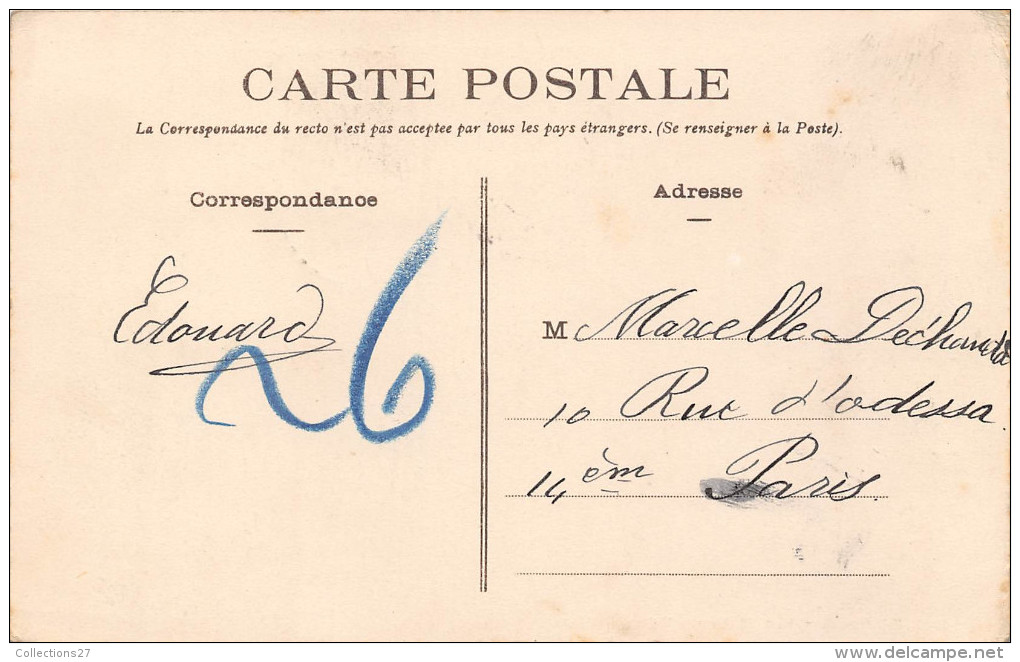 CARTE POSTALE
La Correspondance du recto n'est pas acceptee par tous les pays étrangers. (Se renseigner à la Poste).
Correspondance
Edouard
26
Adresse
M Marcelle
10 Rue d'odessa
14 èm Paris.
Collections27
www.delcampe.net